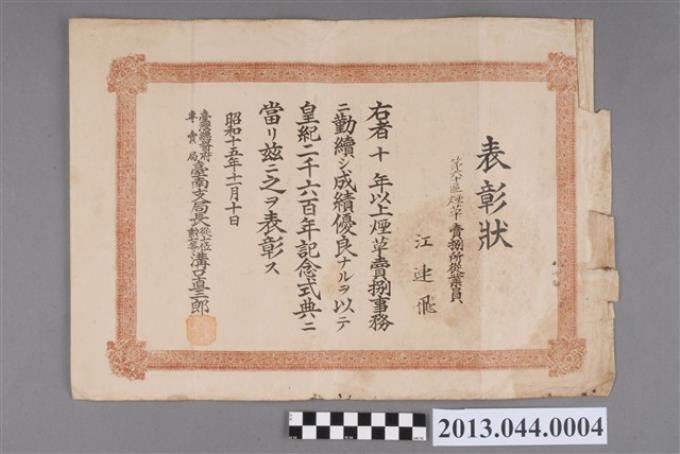 表彰狀
煙草賣捌所從業員
江連飛
右者十年以上煙草賣捌事務
ニ勤續シ成績優良ナルヲ以テ
皇紀二千六百年記念式典ニ
當リ茲ニ之ヲ表彰ス
昭和十五年十一月十日
臺灣總督府
專賣局
臺南支局長
溝口直三郎
2013.044.0004